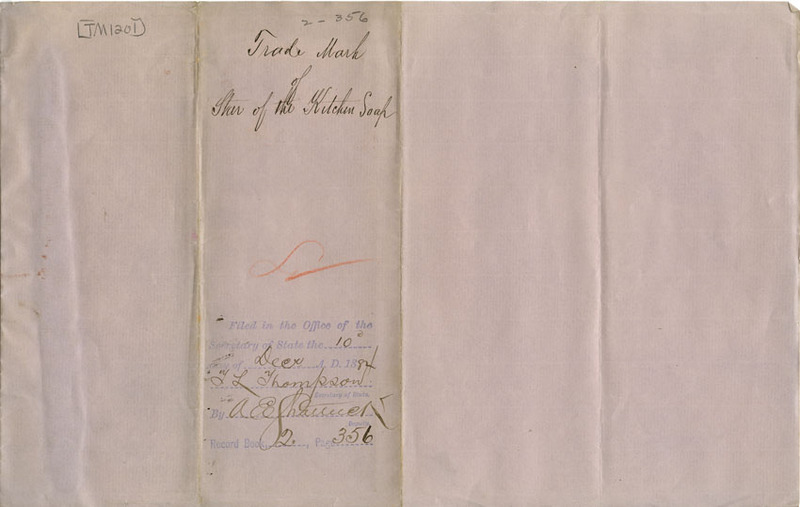 [TM1201]
2-356
Trade Mark
of
Star of the Kitchen Soap
Filed in the Office of the
Secretary of State the 10
day of Decr A. D. 188
T L Thompson
Secretary of State.
By A E Shattuck
Deputy
Record Book 2, Page 356